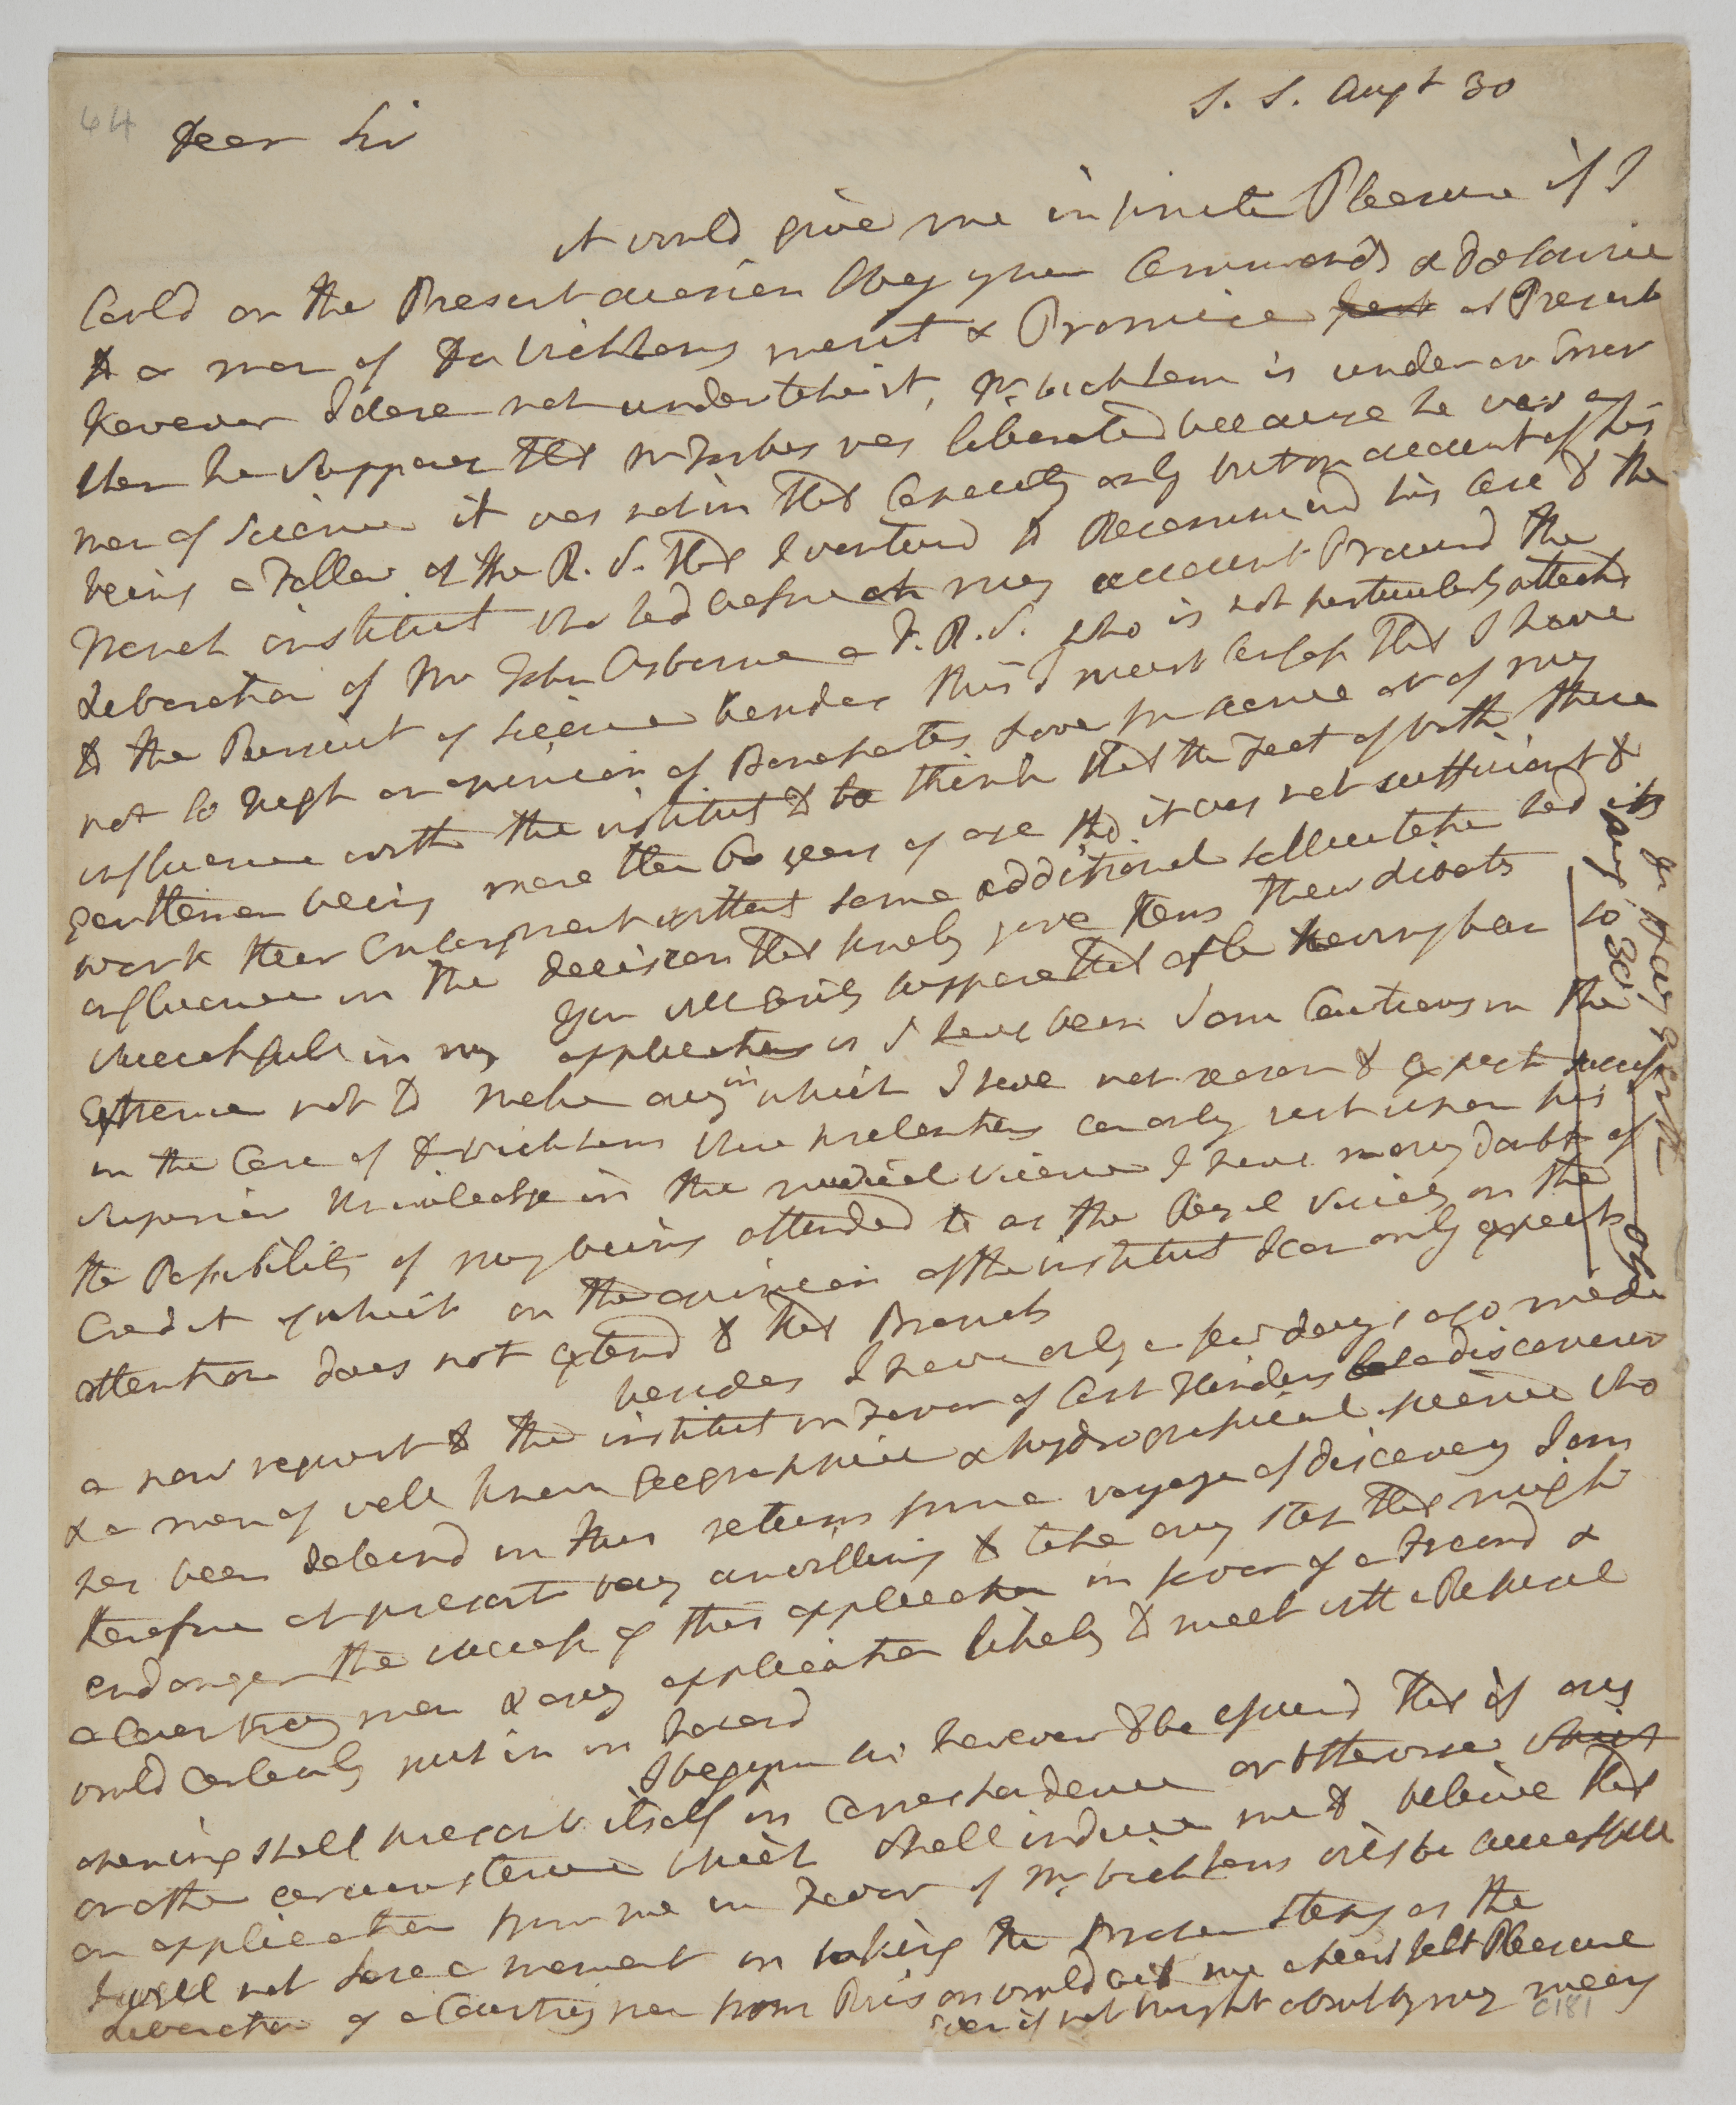 64
S. S. Augt 30
Dear Sir
it would give me infinite Pleasure if I
Could on the Present occasion Obey your Commands & do Service
to a man of Dr Wickhams merit & Promise at Present
however I dare not undertake it, Mr. Wickham is under an Error
when he Supposes that Mr Forbes was liberated because he was a
man of Science it was not in that Capacity only but on account of his
being a Fellow of the R. S. that I ventured to Recommend his Case to the
French institut who had before on my account Procured the
Liberation of Mr John Osborne a F. R. S. who is not particularly attachd
to the Pursuit of Science besides this I must Confess that I have
not so high an opinion of Bonapartes Love for science or of my
influence with the institut to think that the Fact of both these
gentlemen being more than 60 years of age tho it was not sufficient to
work their Enlargment without some additional sollicitation had its
influence in the decision that finaly gave them their liberty
You will Easily suppose that after having been so
successfull in my applications as I have been I am Cautious in the
Extreme not to make any in which I have not reason to Expect success
in the Case of Dr Wickhams whose pretentions can only rest upon his
superior Knowledge in the medical Science I have many doubts of
the Possibility of my being attended to as the Royal Society on the
Credit of which in the opinion of the institut I can only Expect
attention does not extend to that Branch
besides I have only a few days ago made
a new request to the institut in Favor of Capt Flinders a discoverer
& a man of well known geographical & hydrographical science who
has been detaind in his return from a voyage of discovery I am
therefore at present very unwilling to take any step that might
endanger the success of this application in favor of a Friend &
a Countrey man & any application likely to meet with a Refusal
would Certainly put it in hazard
I beg you will however to be assurd that if any
opening shall present itself in Correspondence or otherwise
or other circumstance which shall induce me to beleive that
an application from me in Favor of Mr. Wickhams will be successfull
I will not Lose a moment in taking the Proper steps as the
Liberation of a Countrey man from Prison would give me a heart felt Pleasure
Even if not brought about by my means
Aug 30
C181